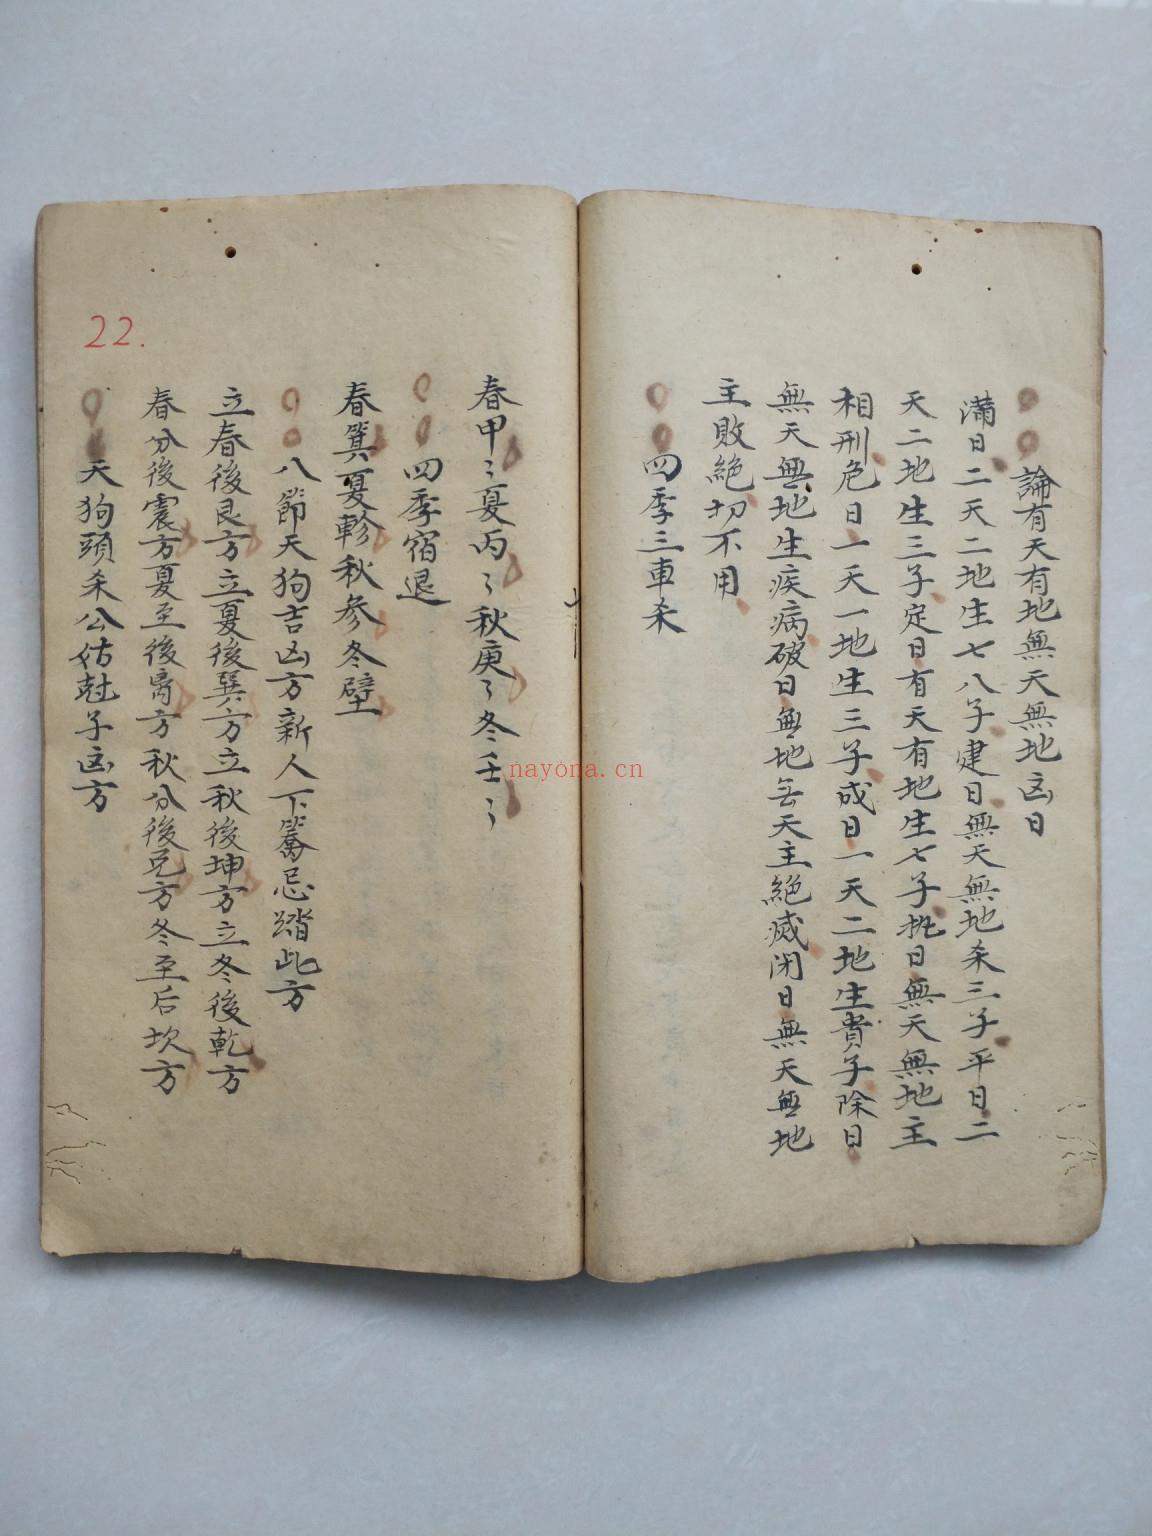 論有天有地無天無地凶日
滿日二天二地生七八子建日無天無地杀三子平日二
天二地生三子定日有天有地生七子执日無天無地主
相刑危日一天一地生三子成日一天二地生貴子除日
無天無地生疾病破日無地无天主絶滅闭日無天無地
主敗絶切不用
四季三車杀
春甲〻夏丙〻秋庚〻冬壬〻
四季宿退
春箕夏軫秋參冬壁
八節天狗吉凶方新人下轎忌踏此方
立春後艮方立夏後巽方立秋後坤方立冬後乾方
春分後震方夏至後离方秋分後兑方冬至后坎方
天狗頭杀公姑尅子凶方
22.
nayona.cn